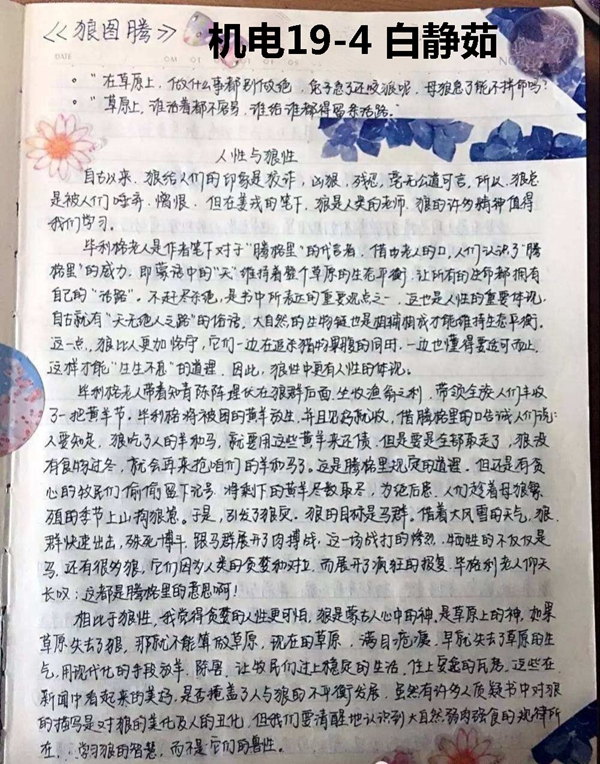 《狼图腾》
机电19-4 白静茹
。"在草原上，做什么事都别做绝，兔子急了还咬狼呢，母狼急了能不拼命吗？
。"草原上，谁活着都不容易，谁给谁都得留条活路。"
人性与狼性
自古以来，狼给人们的印象是狡诈，凶狠，残忍，毫无公道可言。所以，狼总
是被人们唾弃、憎恨。但在姜戎的笔下，狼是人类的老师，狼的许多精神值得
我们学习。
毕利格老人是作者笔下对于"腾格里"的代言者，借由老人的口，人们认识了"腾
格里"的威力，即蒙语中的"天"维持着整个草原的生态平衡，让所有的生命都拥有
自己的"活路"。不赶尽杀绝，是书中所表达的重要观点之一，这也是人性的重要体现。
自古就有"天无绝人之路"的俗语，大自然的生物链也是相辅相成才能维持生态平衡。
这一点，狼比人更加恪守，它们一边在追杀猎物果腹的同时，一边也懂得要适可而止。
这样才能"生生不息"的道理。因此，狼性中更有人性的体现。
毕利格老人带着知青陈阵埋伏在狼群后面，坐收渔翁之利，带领全族人们丰收
了一把黄羊节。毕利格将被困的黄羊放生，并且见好就收，借腾格里的口告诫人们说：
人要知足，狼吃了人的羊和马，就要用这些黄羊来还债，但是要是全部取走了，狼没
有食物过冬，就会再来抢咱们的羊和马了。这是腾格里规定的道理。但还是有贪
心的牧民们偷偷留下记号，将剩下的黄羊尽数取尽，为绝后患，人们趁着母狼繁
殖的季节上山掏狼崽。于是，引发了狼灾。狼的目标是马群。借着大风雪的天气，狼
群快速出击，殊死搏斗，跟马群展开了肉搏战，这一场战打的惨烈，牺牲的不仅仅是
马，还有很多狼，它们因为人类的贪婪和对立，而展开了疯狂的报复。毕格利老人仰天
长叹：这都是腾格里的意思啊！
相比于狼性，我觉得贪婪的人性更可怕，狼是蒙古人心中的神，是草原上的神，如果
草原失去了狼，那就不能算做草原，现在的草原，满目疮痍，早就失去了草原的生
气，用现代化的手段放羊，除害，让牧民们过上稳定的生活，住上安定的瓦房，这些在
新闻中看起来的美好，是否掩盖了人与狼的不平衡发展，虽然有许多人质疑书中对狼
的描写是对狼的美化及人的丑化，但我们要清醒地认识到大自然弱肉强食的规律所
在，学习狼的智慧，而不是它们的兽性。